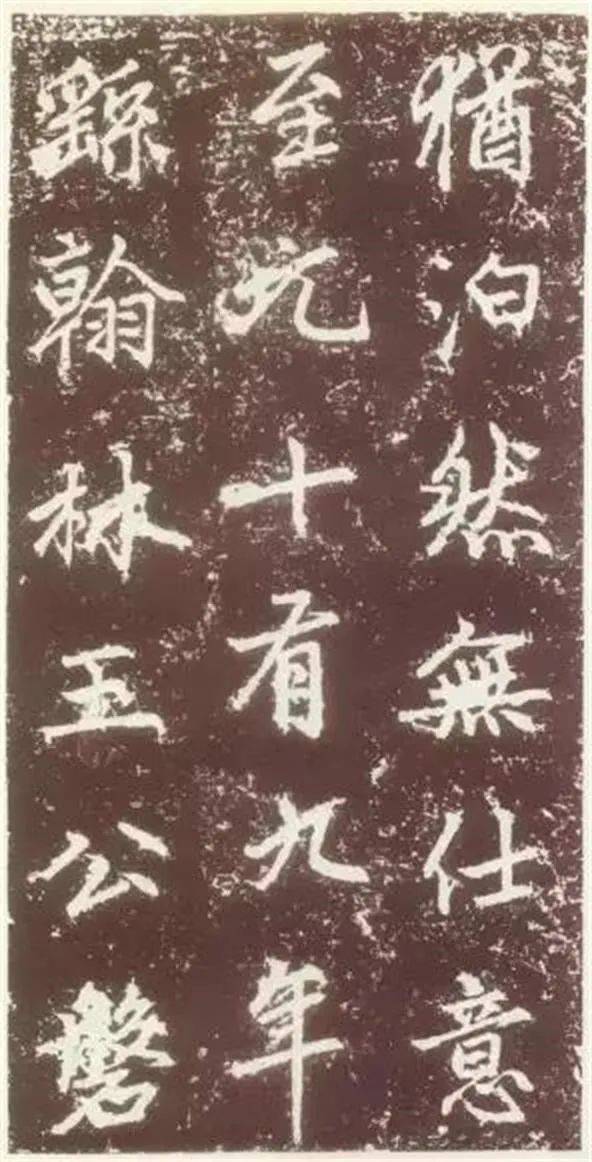 猶泊然無仕意
至元十有九年
繇翰林王公磐